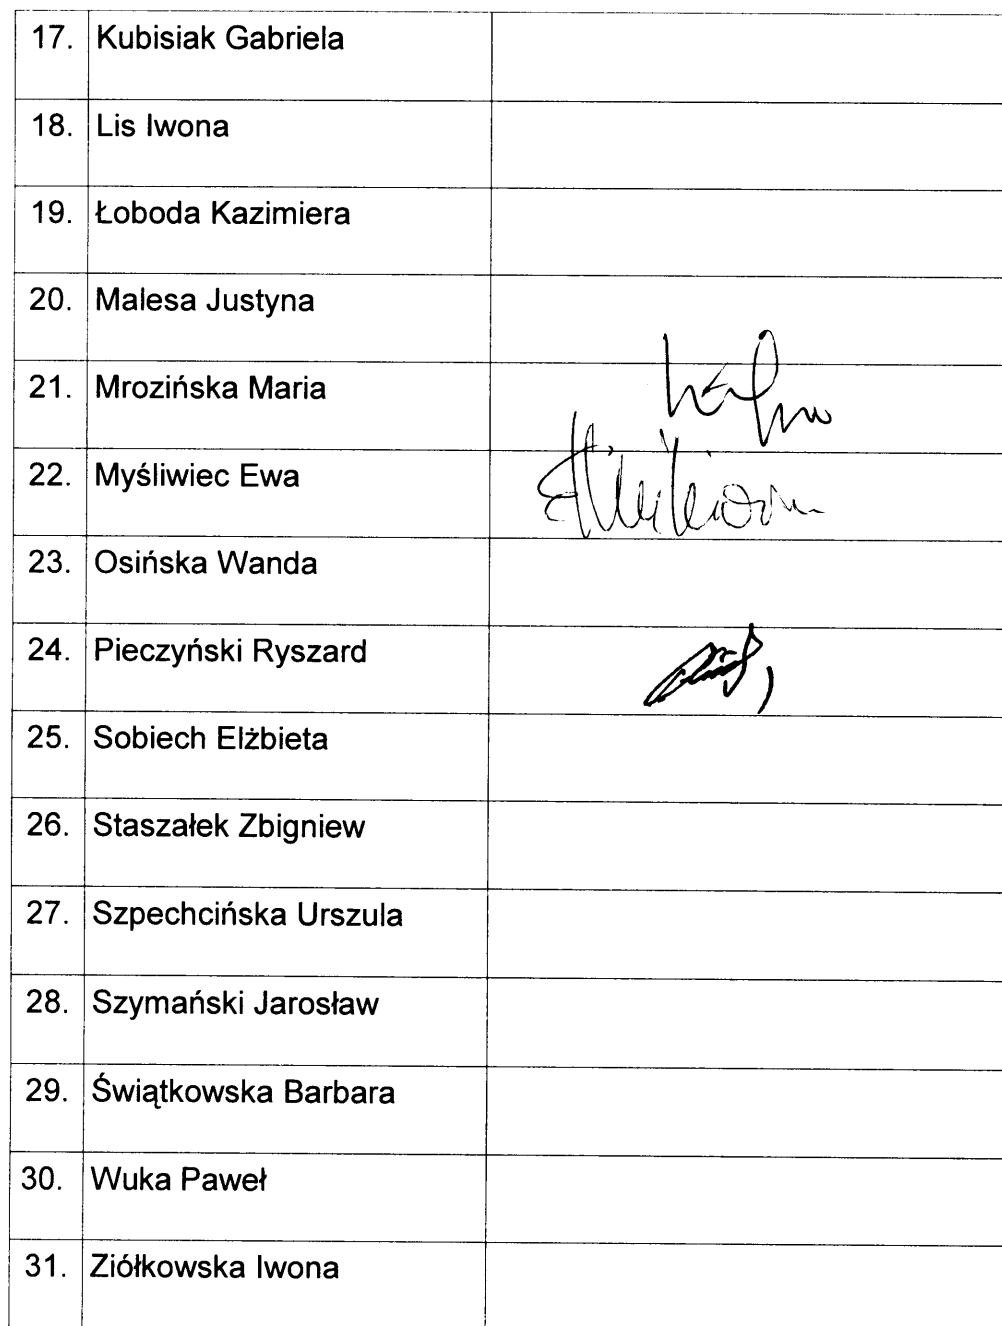 17. Kubisiak Gabriela
18. Lis Iwona
19. Łoboda Kazimiera
20. Malesa Justyna
21. Mrozińska Maria
22. Myśliwiec Ewa
23. Osińska Wanda
24. Pieczyński Ryszard
25. Sobiech Elżbieta
26. Staszałek Zbigniew
27. Szpechcińska Urszula
28. Szymański Jarosław
29. Świątkowska Barbara
30. Wuka Paweł
31. Ziółkowska Iwona